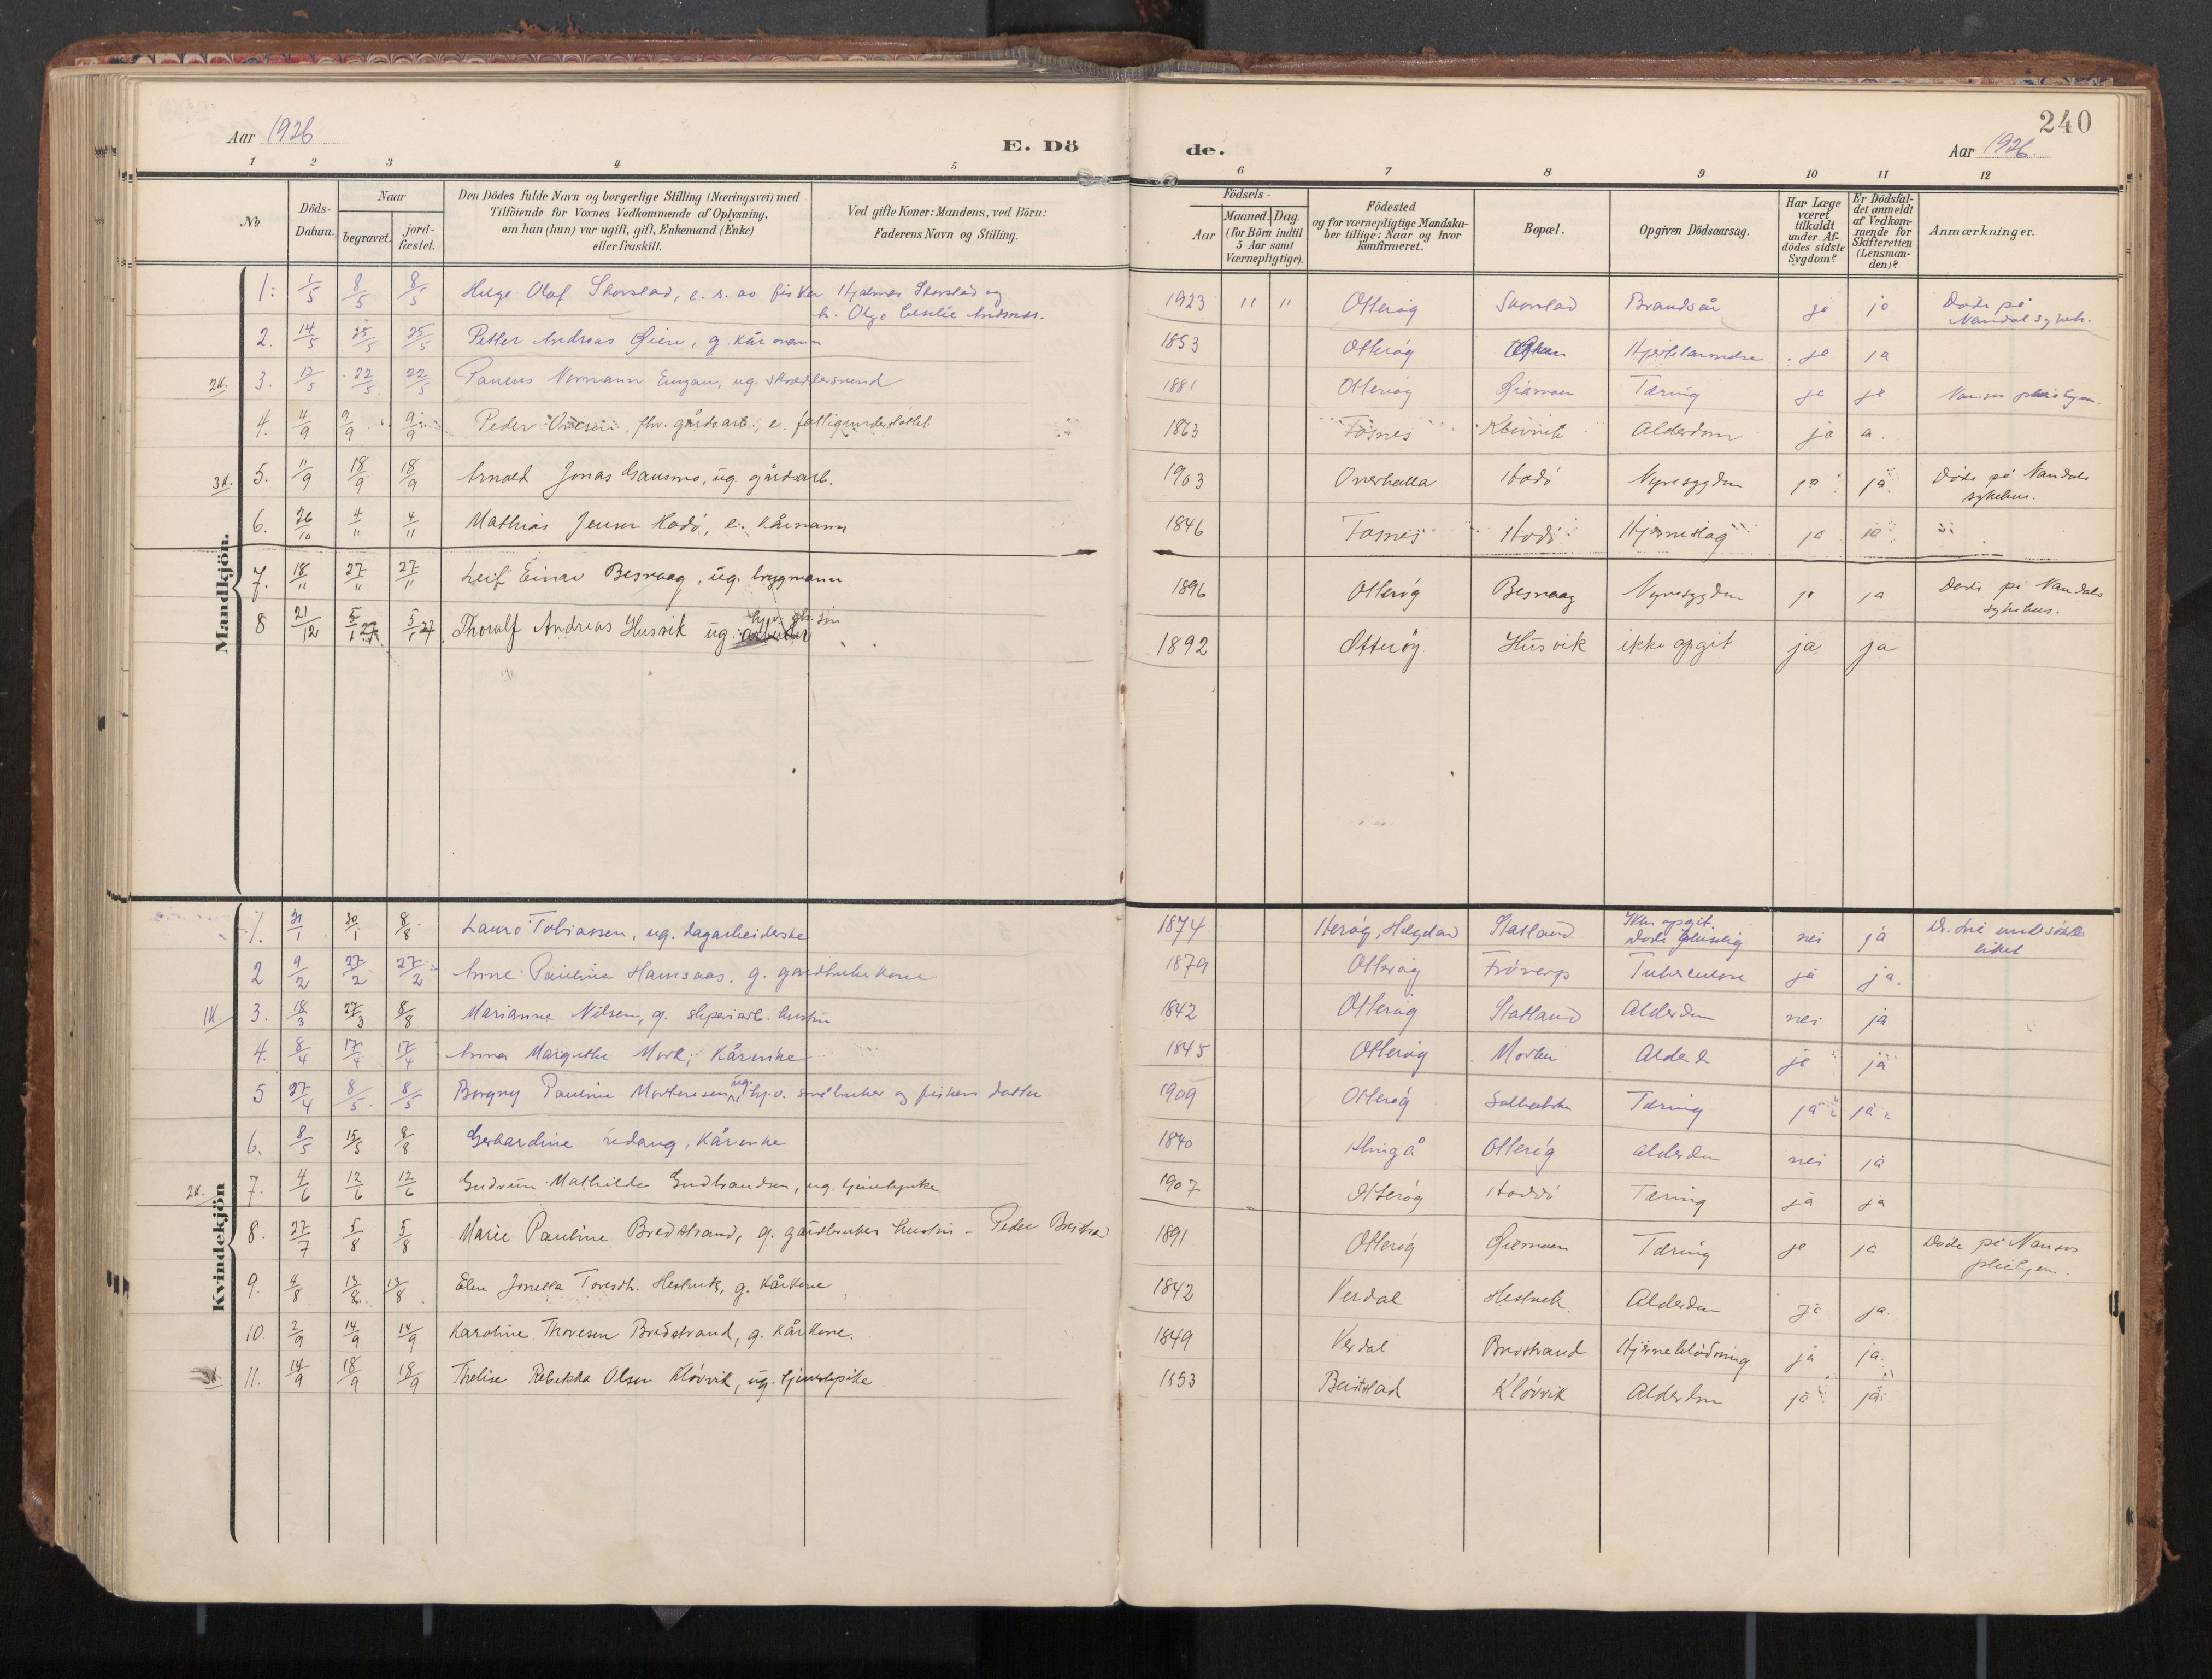 240
Aar 1926
E. Dö
de.
Aar 1926.
1 2 3 4 5 6 7 8 9 10 11 12
No.
Döds-Datum.
Naar
begravet.
jord-fæstet.
Den Dödes fulde Navn og borgerlige Stilling (Næringsvei) med
Tilföiende for Voxnes Vedkommende af Oplysning,
om han (hun) var ugift, gift, Enkemand (Enke)
eller fraskilt.
Ved gifte Koner: Mandens, ved Börn:
Faderens Navn og Stilling.
Födsels-
Aar
Maaned. Dag.
(for Börn indtil
5 Aar samt
Værnepligtige).
Födested
og for værnepligtige Mandska-
ber tillige: Naar og hvor
konfirmeret.
Bopæl.
Opgiven Dödsaarsag.
Har Læge
været
tilkaldt
under Af-
dödes sidste
Sygdom?
Er Dödsfal-
det anmeldt
af Vedkom-
mende for
Skifteretten
(Lensman-
den)?
Anmærkninger.
Mandkjön.
1. 1/5 8/5 8/5 Helge Olaf Skorstad, e. s. av fisker Hjalmar Skorstad og
h. Olga Cecilie Andersdr. 1923 " " Otterøy Skorstad Brandsår ja ja Døde på
Namdal sykeh.
2. 14/5 25/5 25/5 Petter Andreas Øien, g. kårmann 1853 Otterøy ja ja
2K. 3. 12/5 22/5 22/5 ug. 1881 Otterøy Tæring ja ja Namsos pleiehjem.
4. 4/9 9/9 9/9 Peder fhv. gårdsarb., e. fattigunderstöttet 1863 Fosnes Klövvik Alderdom ja
3K. 5. 11/9 18/9 18/9 Arnold Jonas Gansmo, ug. gårdsarb. 1903 Overhalla Hodö Nyresygdom ja ja Døde på Namdals
sykehus.
6. 26/10 4/11 4/11 Mathias Jensen Hodö, e. kårmann 1846 Fosnes Hodö Hjerneslag ja ja
7. 18/11 27/11 27/11 Leif Einar Besvaag, ug. 1896 Otterøy Besvaag Nyresygdom ja ja Døde på Namdals
sykehus.
8 21/12 5/1 27 5/1 27 Thoralf Andreas Husvik ug. 1892 Otterøy Husvik ikke opgit ja ja
Kvindekjön
1. 30/1 8/8 Laura Tobiassen, ug. dagarbeiderske 1874 Herøy, Helgeland Statland Ikke opgit.
Døde pluselig nei ja Dr. Lie undersökte
liket
2 9/2 27/2 27/2 Anne Pauline Hamsaas, g. gardbrukerkone 1879 Otterøy Tuberculose ja ja.
1K. 3. 18/3 27/3 8/8 Marianne Nilsen, g. sliperiarb. hustru 1842 Otterøy Statland Alderdom nei ja
4. 8/4 17/4 17/4 Anna Margrethe Mork, kårenke 1845 Otterøy Alderd ja ja
5 27/4 8/5 8/5 Borgny Pauline Mortensen, ug. hj.v. småbruker og fiskers datter 1909 Otterøy Tæring ja ja
6. 8/5 15/5 8/8 Gerhardine kårenke 1840 Otterøy alderdom nei ja
2K. 7. 4/6 12/6 12/6 Gudrun Mathilde Gudbrandsen, ug. 1907 Otterøy Hoddö Tæring ja ja
8. 27/7 5/8 5/8 Marie Pauline Bredstrand, g. gårdbruker hustru - Peder 1891 Otterøy Tæring ja ja Døde på Namsos
pleiehjem.
9. 4/8 12/8 12/8 Elen Jonetta Toresdtr. Hestvik, g. kårkone 1842 Verdal Hestvik Alderdom ja ja.
10. 2/9 14/9 14/9 Karoline Thoresen Bredstrand, g. kårkone. 1849 Verdal Bredstrand Hjerneblödning ja ja.
3K. 11. 14/9 18/9 18/9 Thelise Rebekka Olsen Klövvik, ug. tjenestepike 1853 Beitstad Klövvik Alderdom ja ja